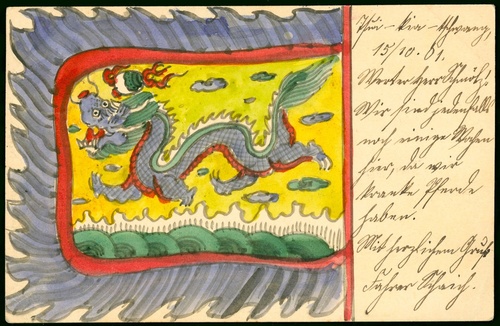 Phui-kia-tschwang,
15/10.01.
Werter Herr Schmötz,
Wir sind jedenfalls
noch einige Wochen
hier, da wir
kranke Pferde
haben.
Mit herzlichem Gruß
Fahrer Schaich.